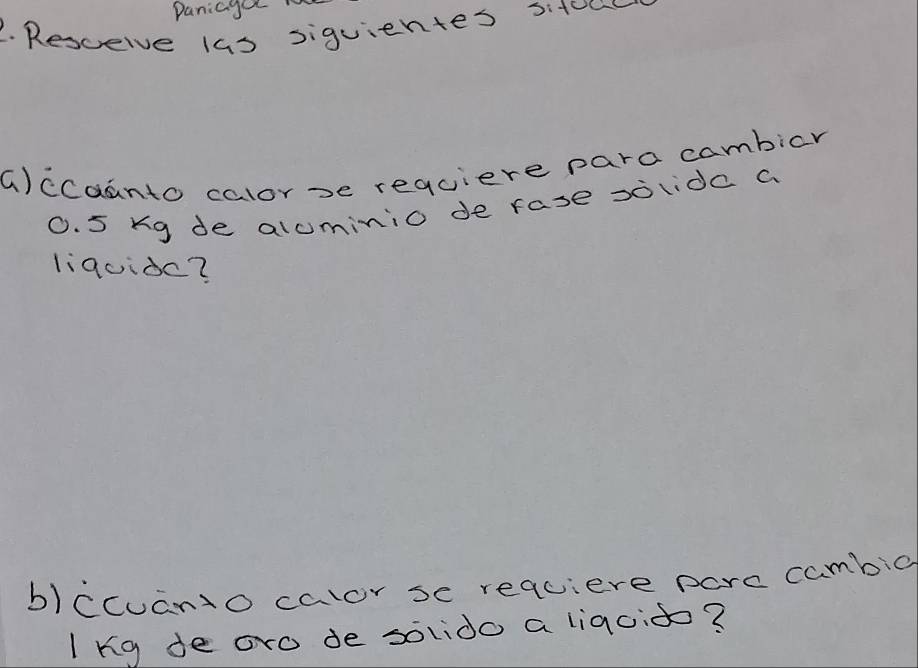 2. Resuelve las siguientes
a) ¿Cuánto calor se requiere para cambiar
0.5 Kg de aluminio de fase sólida a
liquida?
b) ¿Cuánto calor se requiere para cambia
1 Kg de oro de sólido a liquido?